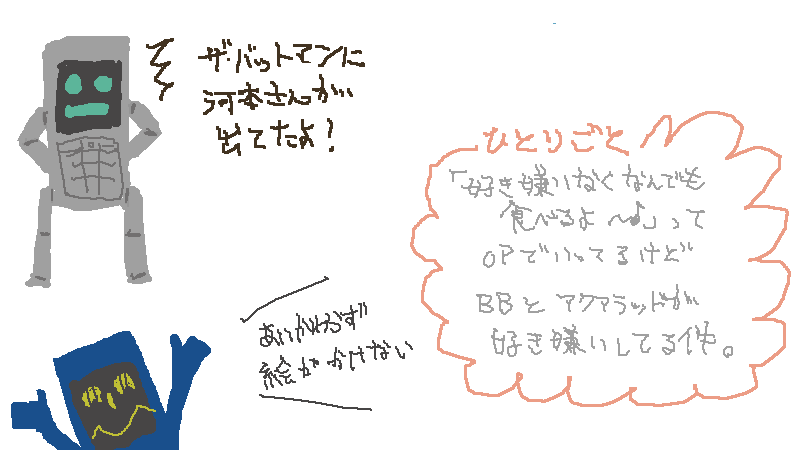 ザ・バットマンに
河本さんが
出てたよ！
ひとりごと
「好き嫌いなくなんでも
食べるよ〜♪」って
OPでいってるけど
BBとアクアラッドが
好き嫌いしてる件。
あいかわらず
絵がかけない